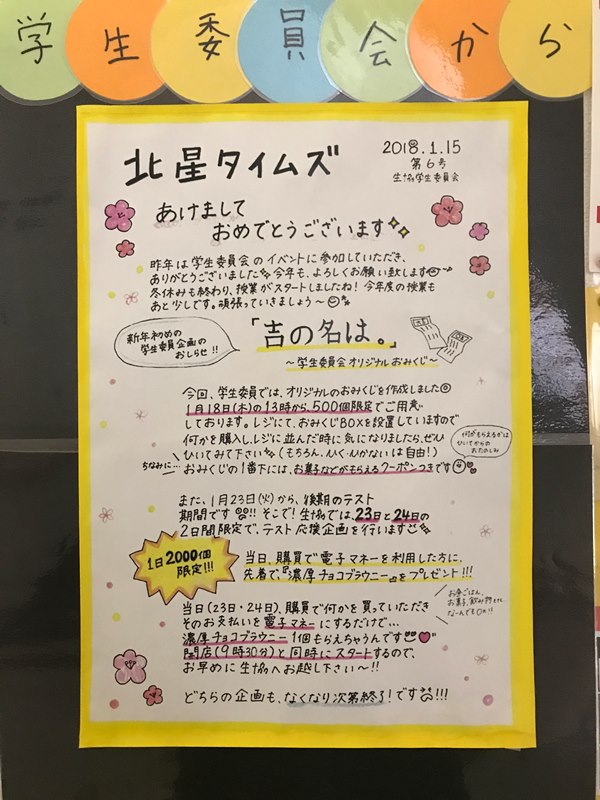 学生委員会から
北星タイムズ
2018.1.15
第6号
生協学生委員会
あけまして
おめでとうございます
昨年は学生委員会のイベントに参加していただき、
ありがとうございました 今年も、よろしくお願い致します
冬休みも終わり、授業がスタートしましたね!今年度の授業も
あと少しです。頑張っていきましょう〜
新年初めの
学生委員企画の
おしらせ!!
「吉の名は。」
〜学生委員会オリジナルおみくじ〜
今回、学生委員では、オリジナルのおみくじを作成しました
1月18日(木)の13時から、500個限定でご用意
しております。レジにて、おみくじBOXを設置していますので
何かを購入し、レジに並んだ時に気になりましたら、ぜひ
ひいてみて下さい (もちろん、ひく・ひかないは自由!)
ちなみに…
おみくじの1番下には、お菓子などがもらえるクーポンつきです
何がもらえるかは
ひいてからの
おたのしみ
また、1月23日(火)から、後期のテスト
期間です!!そこで!生協では、23日と24日の
2日間限定で、テスト応援企画を行います
1日2000個
限定!!!
当日、購買で電子マネーを利用した方に、
先着で、『濃厚チョコブラウニー』をプレゼント!!!
お昼ごはん、
お菓子、飲み物etc
なーんでもOK!!
当日(23日・24日)、購買で何かを買っていただき
そのお支払いを電子マネーにするだけで…
濃厚チョコブラウニー1個もらえちゃうんです
開店(9時30分)と同時にスタートするので、
お早めに生協へお越し下さい〜!!
どちらの企画も、なくなり次第終了!です!!!